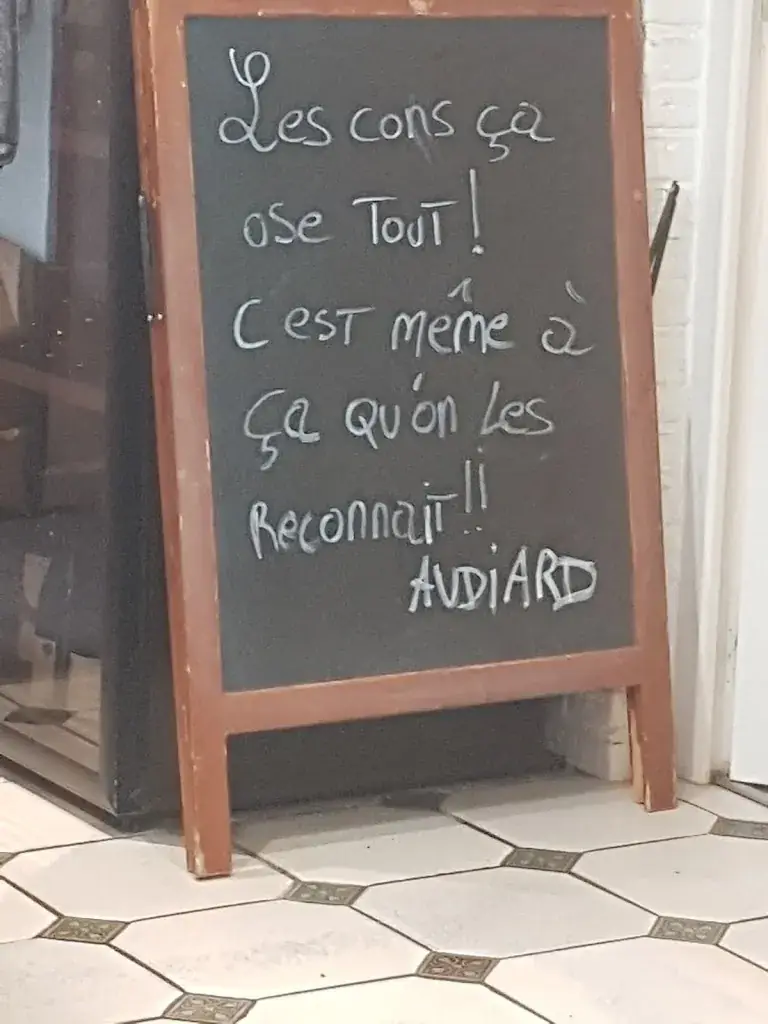 Les cons ça
ose Tout !
C'est même à
ça qu'on les
Reconnaît !!
AUDiARD